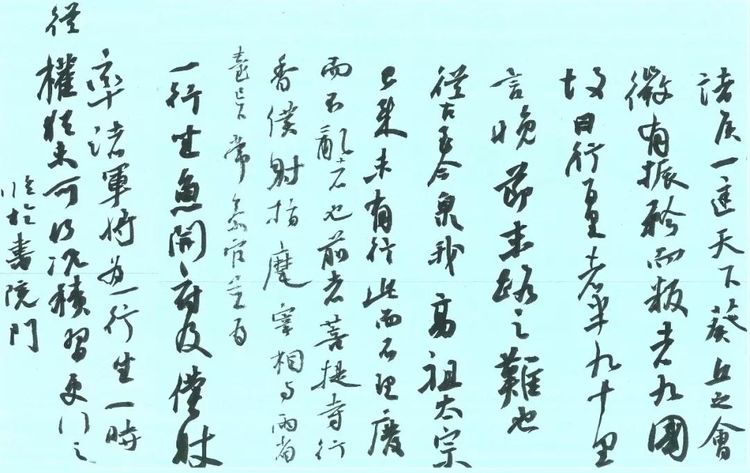 諸侯一匡天下葵丘之會
微有振矜而叛者九國
故曰行百里者半九十里
言晚節末路之難也
從古至今泉我高祖太宗
已來未有行此而不理廢
而不亂者也前者菩提寺行
香僕射指麾宰相与兩省
臺已下常参官並為
一行坐魚開府及僕射
率諸軍將為一行坐一時
從權猶未可何况積習更行之
臨於書院門